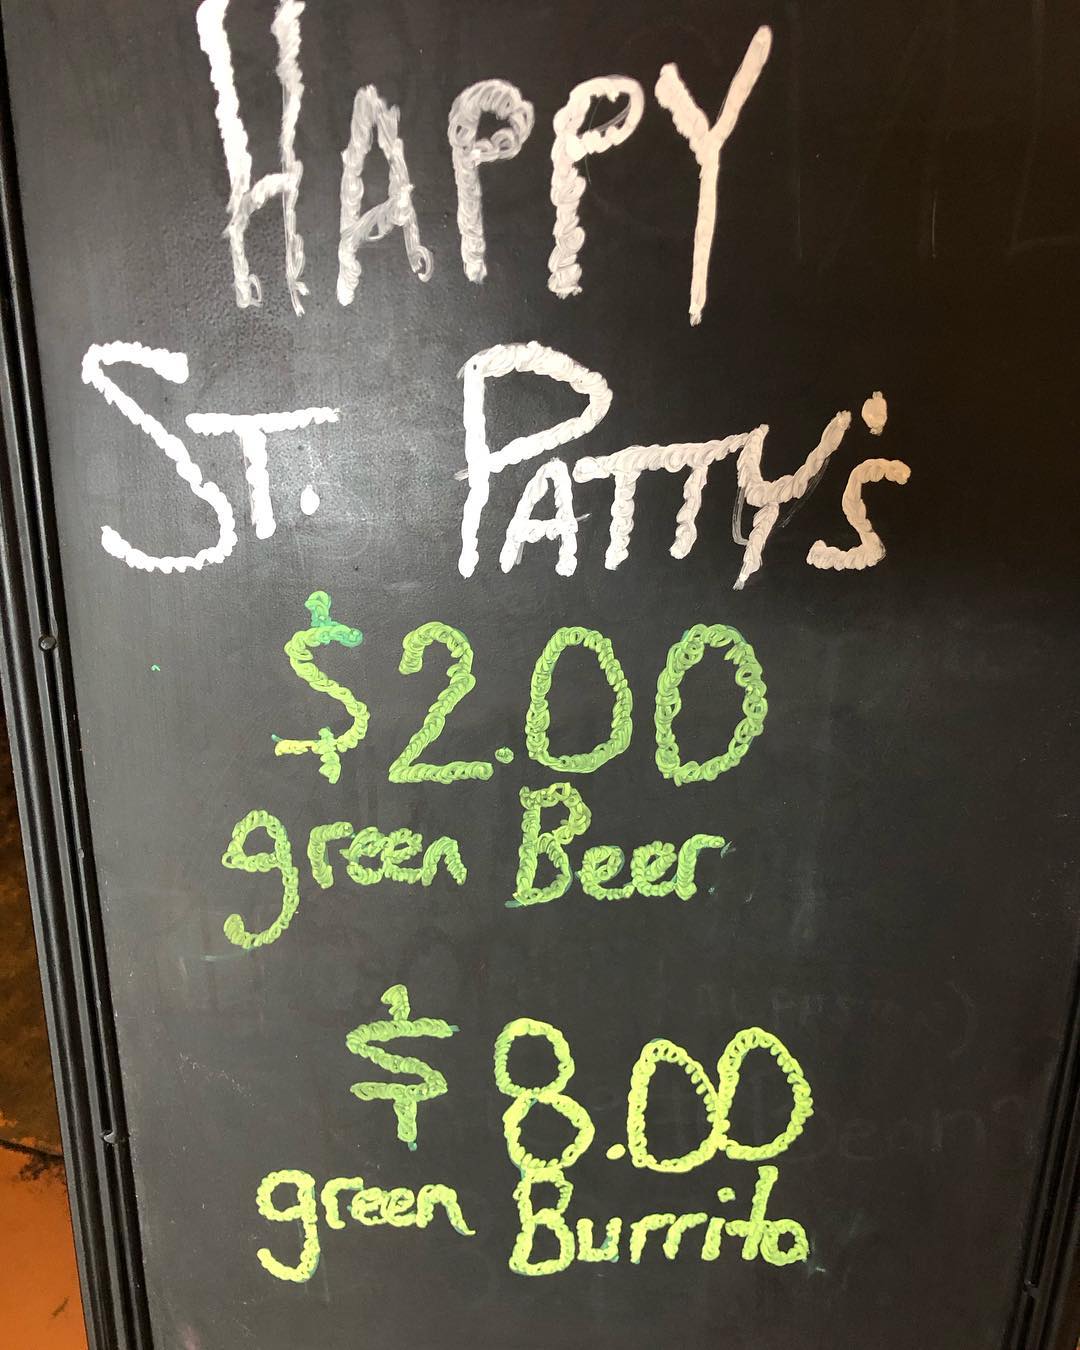 HAPPY
ST. PATTY'S
$2.00
green Beer
$8.00
green Burrito